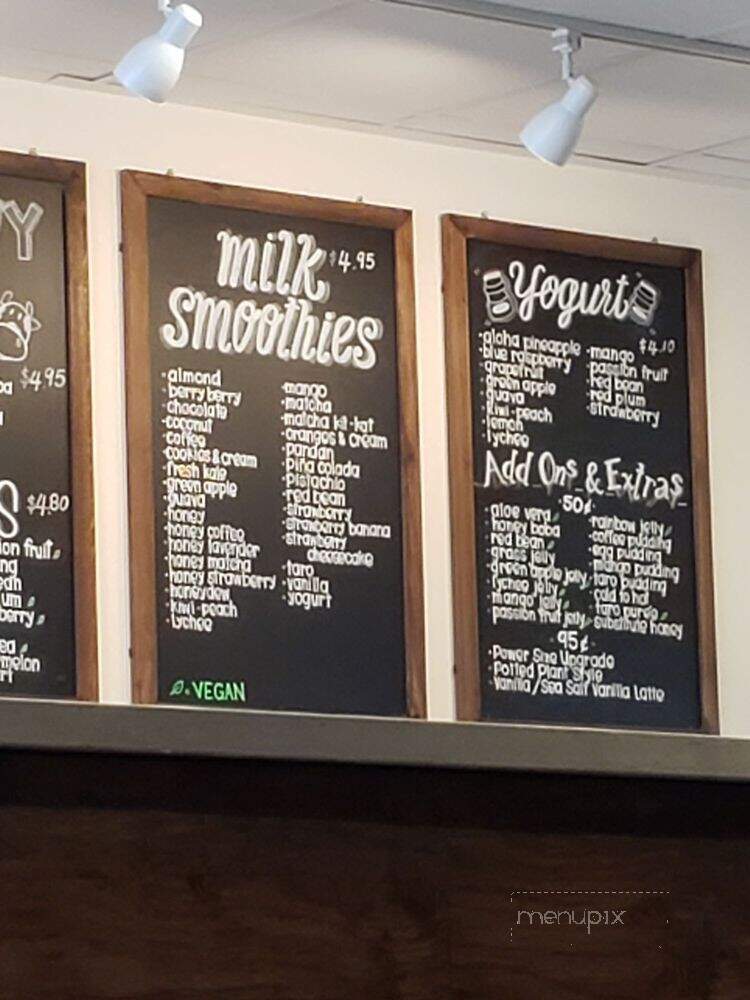 Y
$4.95
S
$4.80
ion fruit
um
berry
melon
milk $4.95
smoothies
·almond
·berry berry
·chocolate
·coconut
·coffee
·cookies & cream
·fresh kale
·green apple
·guava
·honey
·honey coffee
·honey lavender
·honey matcha
·honey strawberry
·honeydew
·kiwi-peach
·lychee
·mango
·matcha
·matcha kit-kat
·oranges & cream
·pandan
·piña colada
·pistachio
·red bean
·strawberry
·strawberry banana
·strawberry
cheesecake
·taro
·vanilla
·yogurt
·VEGAN
Yogurt
$4.10
·aloha pineapple
·blue raspberry
·grapefruit
·green apple
·guava
·kiwi-peach
·lemon
·lychee
·mango
·passion fruit
·red bean
·red plum
·strawberry
Add Ons & Extras
·50¢
·aloe vera
·honey boba
·red bean
·grass jelly
·green apple jelly
·lychee jelly
·mango jelly
·passion fruit jelly
·rainbow jelly
·coffee pudding
·egg pudding
·mango pudding
·taro pudding
·cold to hot
·taro puree
·substitute honey
·95¢
·Power Size Upgrade
·Potted Plant Style
·Vanilla/Sea Salt Vanilla Latte
menupix